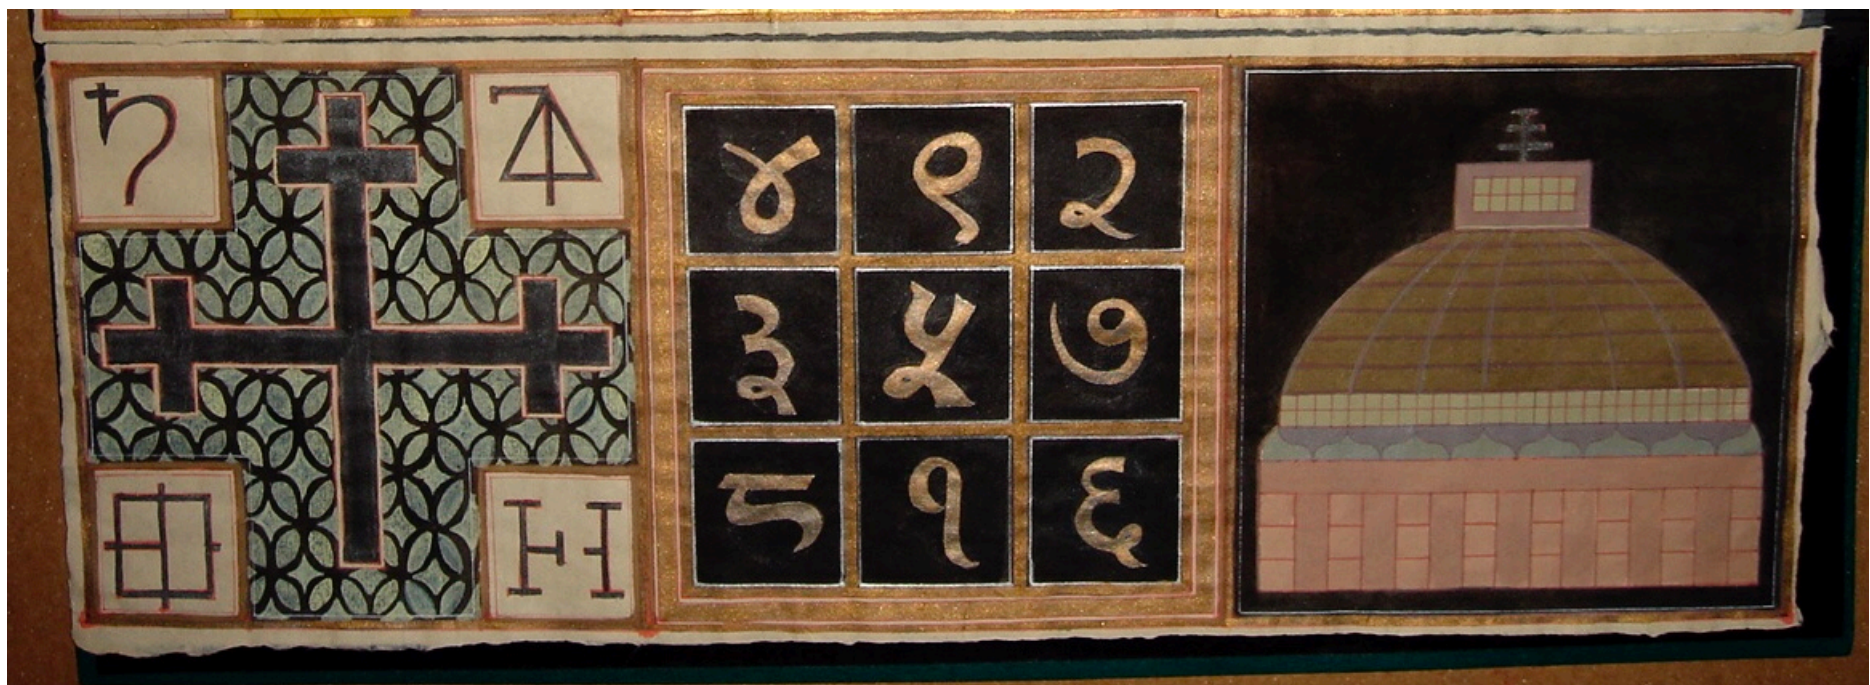 ४ ९ २
३ ५ ७
८ १ ६